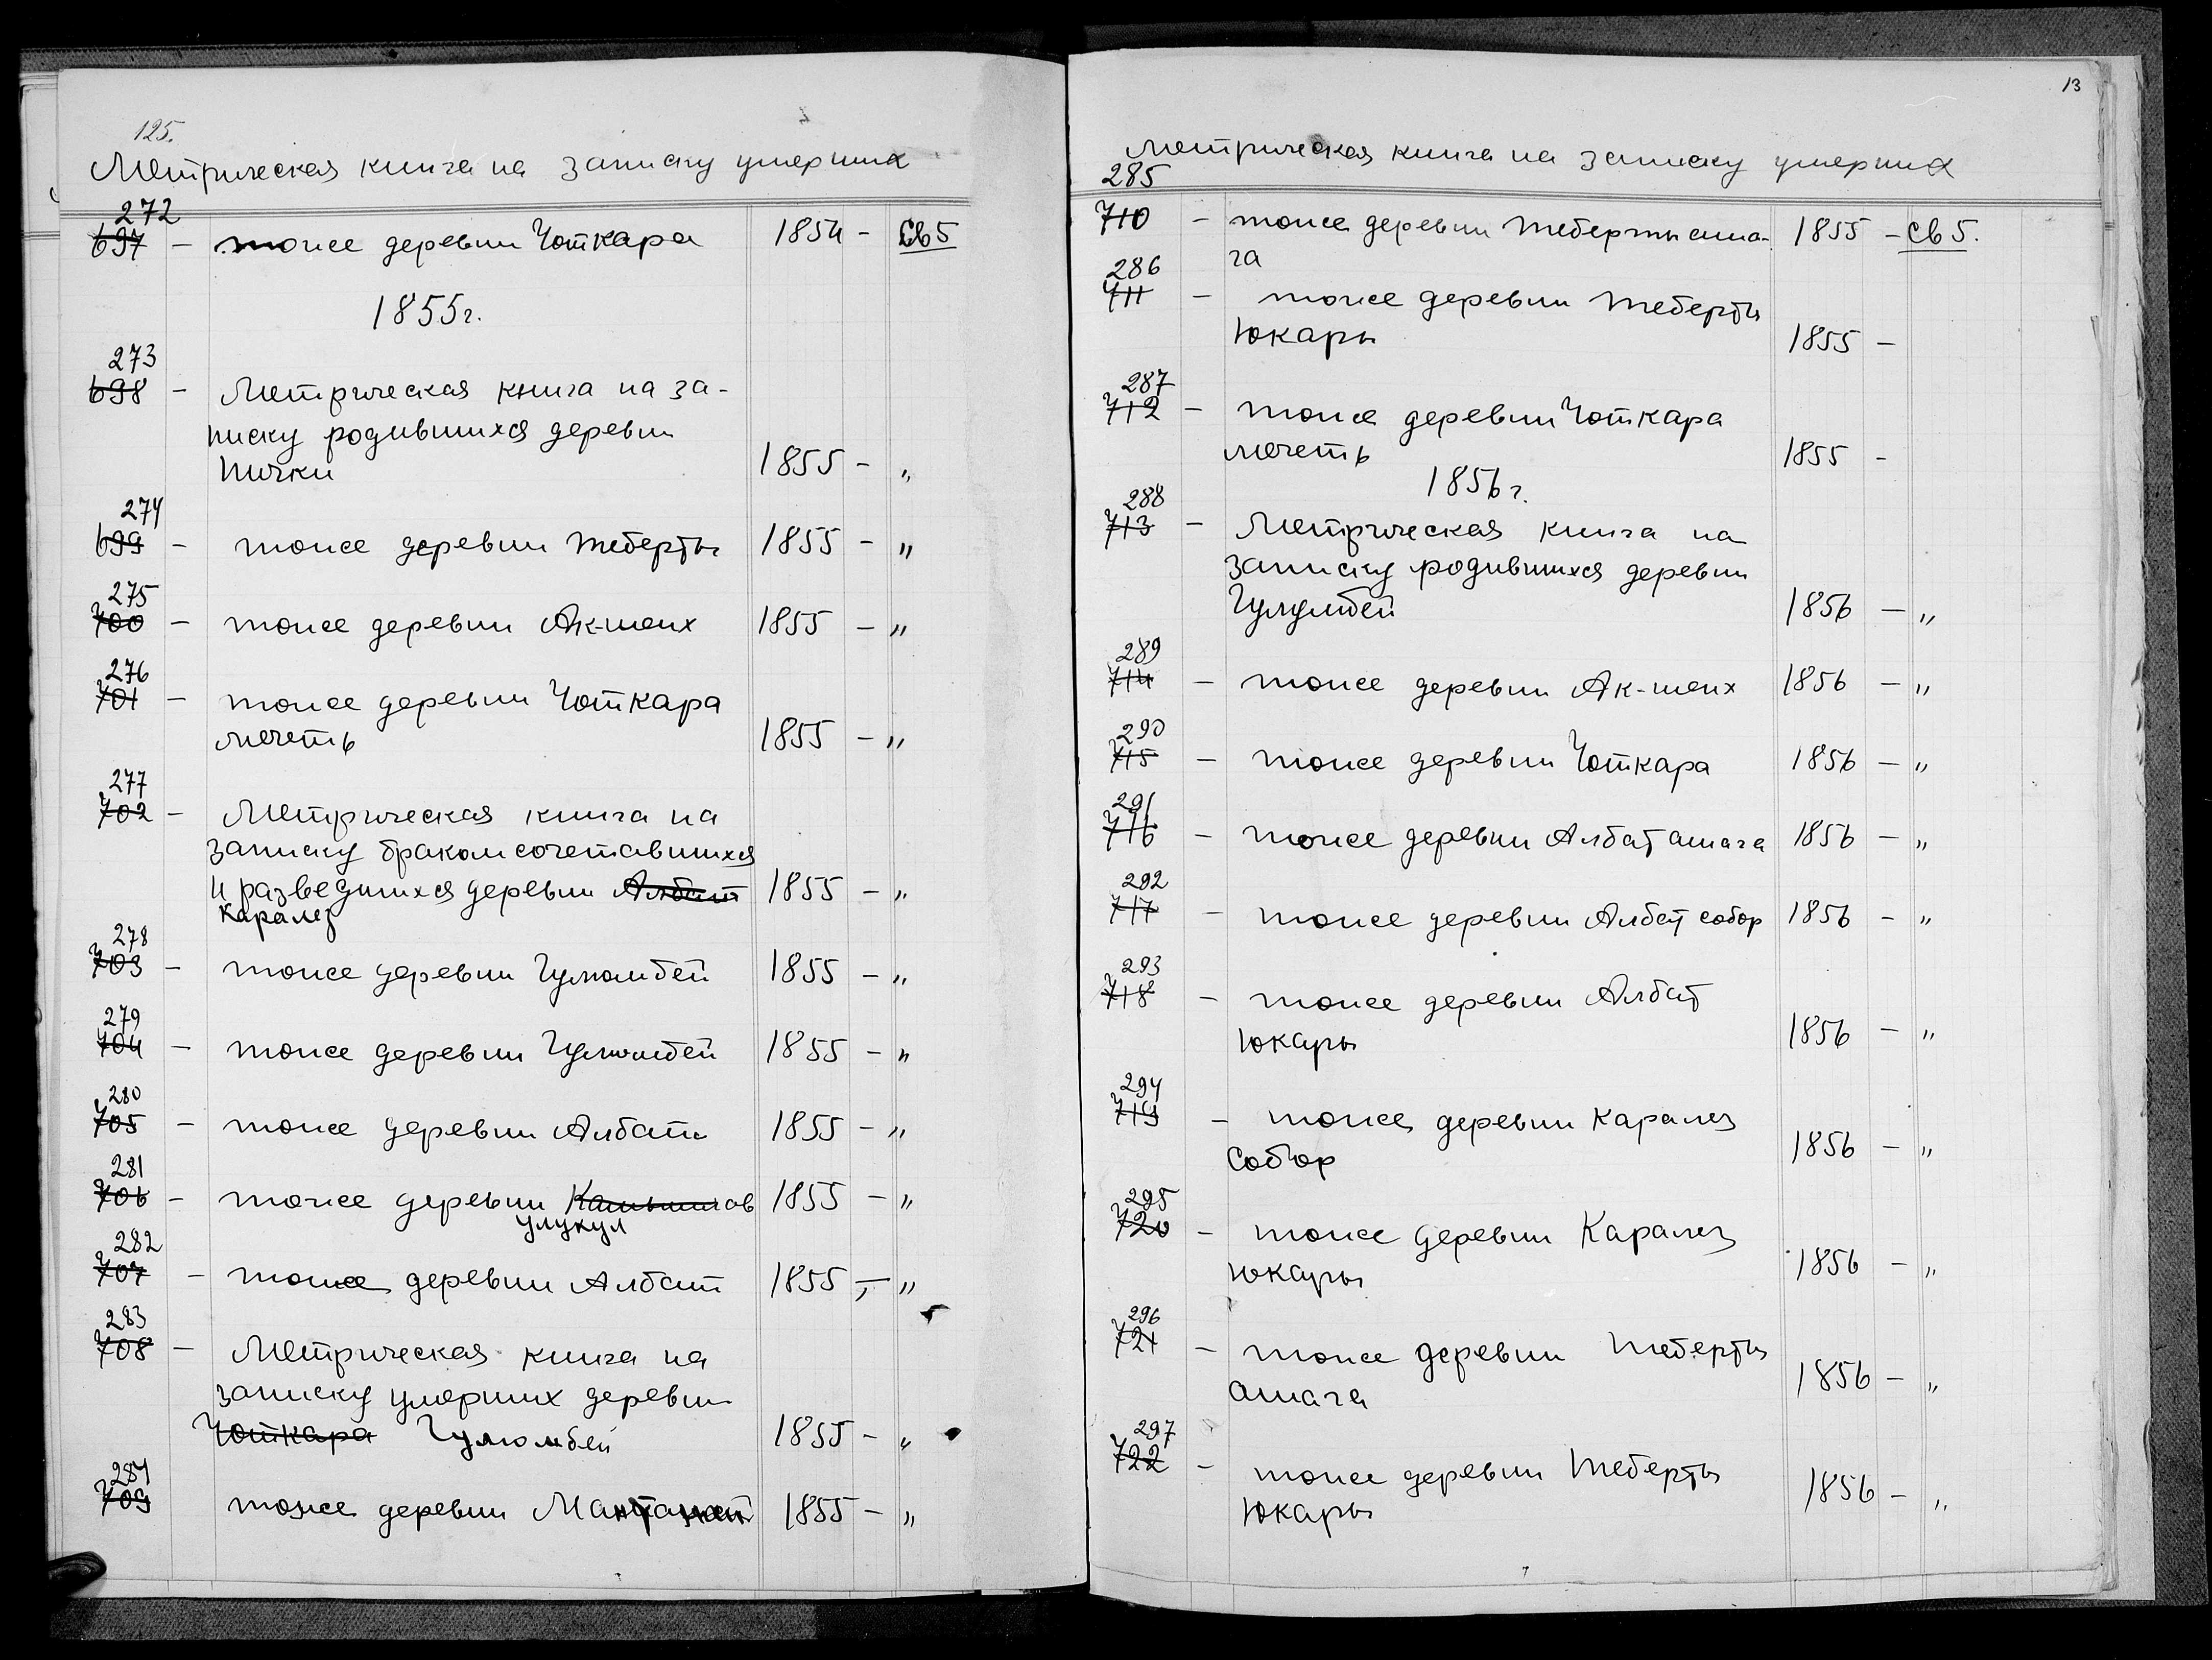 125.
Метрическая книга на записку умерших
272
697 – тоже деревни Чоткара 1854 – Св 5
1855 г.
273
698 – Метрическая книга на за-
писку родившихся деревни
Пички 1855 – „
274
699 – тоже деревни Теберты 1855 – „
275
700 – тоже деревни Ак-шеих 1855 – „
276
701 – тоже деревни Чоткара
мечеть 1855 – „
277
702 – Метрическая книга на
записку бракомсочетавшихся
и разведшихся деревни Албат 1855 – „
Каралез
278
703 – тоже деревни Гулюмбей 1855 – „
279
704 – тоже деревни Гулюмбей 1855 – „
280
705 – тоже деревни Албати 1855 – „
281
706 – тоже деревни 1855 – „
улукул
282
707 – тоже деревни Албат 1855 – „
283
708 – Метрическая книга на
записку умерших деревни
Чоткара Гулюмбей 1855 – „
284
709 тоже деревни 1855 – „
13
Метрическая книга на записку умерших
285
710 – тоже деревни Теберты аша- 1855 – Св 5.
га
286
711 – тоже деревни Теберты
Юкары 1855 –
287
712 – тоже деревни Чоткара
мечеть 1855 –
1856 г.
288
713 – Метрическая книга на
записку родившихся деревни
Гулумбей 1856 – „
289
714 – тоже деревни Ак-шеих 1856 – „
290
715 – тоже деревни Чоткара 1856 – „
291
716 – тоже деревни Албат ашага 1856 – „
292
717 – тоже деревни Албат собор 1856 – „
293
718 – тоже деревни Албат
Юкары 1856 – „
294
719 – тоже деревни Каралез
Собор 1856 – „
295
720 – тоже деревни Каралез
Юкары 1856 – „
296
721 – тоже деревни Теберты
ашага 1856 – „
297
722 – тоже деревни Теберты
Юкары 1856 – „